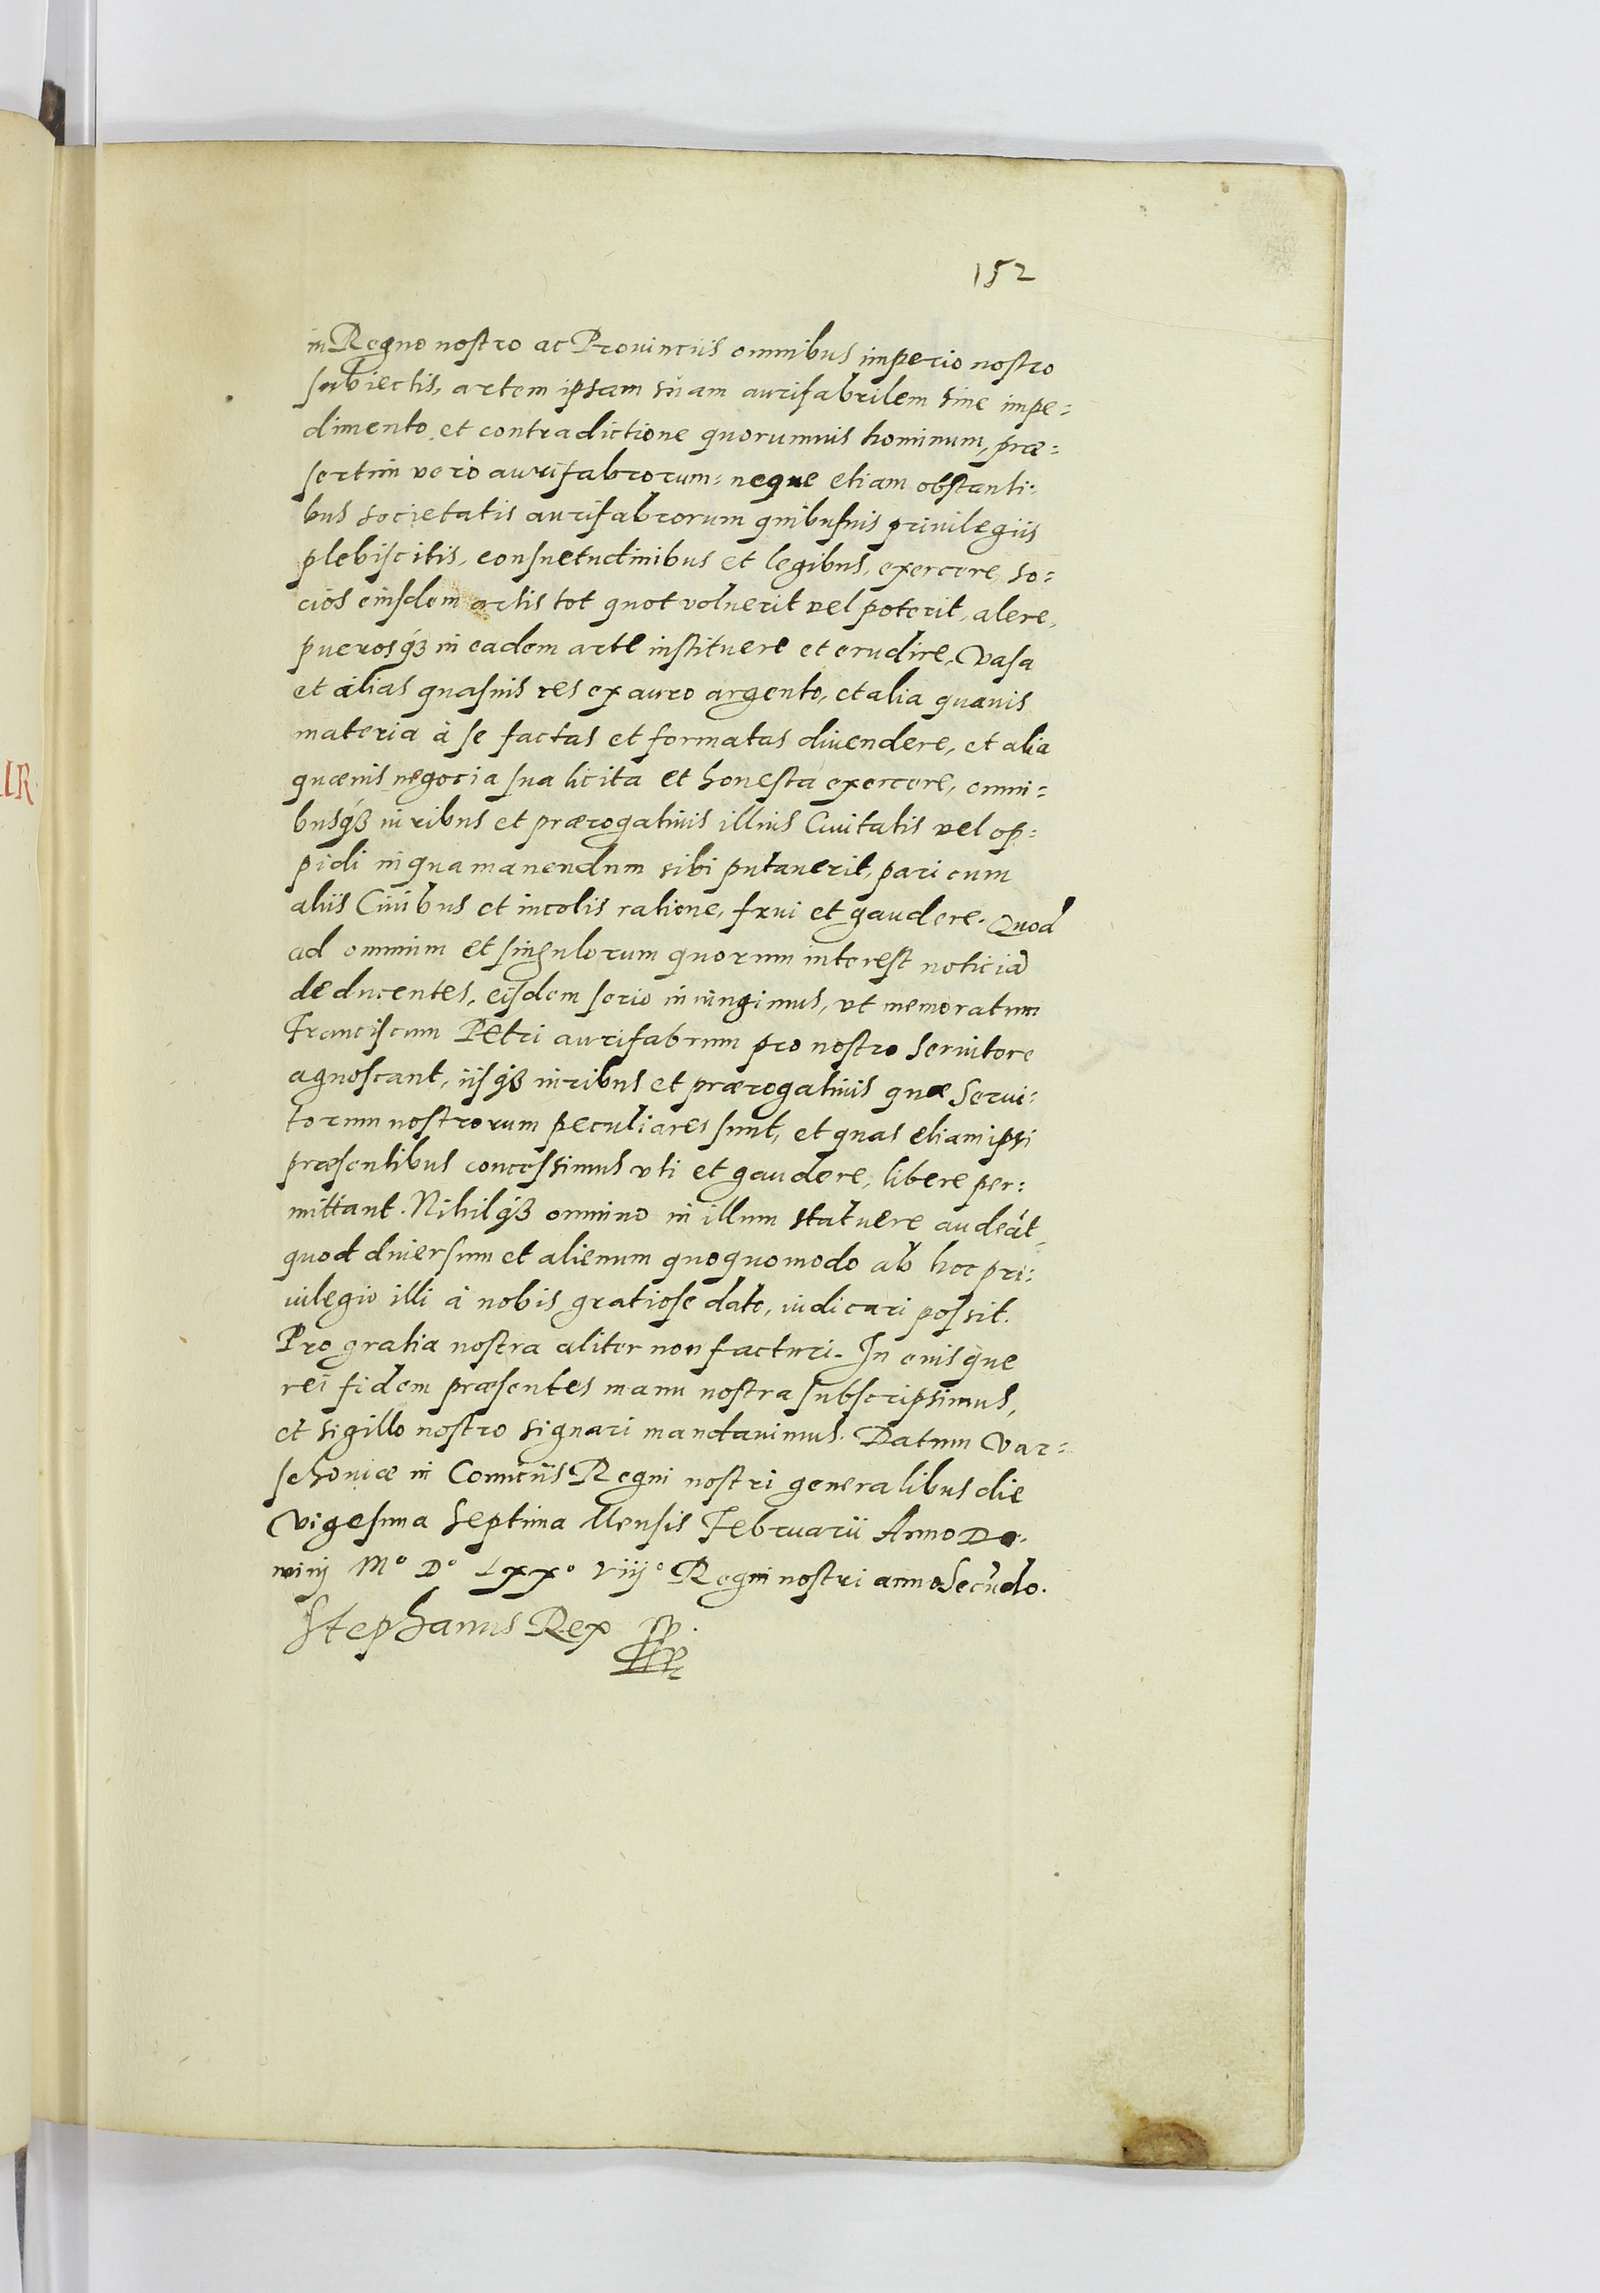 152
in Regno nostro ac Prouinciis omnibus imperio nostro
subiectis, artem ipsam suam aurifabrilem sine impe=
dimento et contradictione quorumuis hominum, præ=
sertim verò aurifabrorum: neque etiam obstanti=
bus societatis aurifabrorum quibusuis priuilegiis
plebiscitis, consuetudinibus et legibus, exercere, so=
cios eiusdem artis tot quot voluerit vel poterit, alere,
puerosq́ꝫ in eadem arte instituere et erudire, Vasa
et alias quasuis res ex auro argento, et alia quauis
materia à se factas et formatas diuendere, et alia
quæuis negocia sua licita et honesta exercere, omni=
busq́ꝫ iuribus et prærogatiuis illius Ciuitatis vel op=
pidi in qua manendum sibi putauerit, pari cum
aliis Ciuibus et incolis ratione, frui et gaudere. Quod
ad omnium et singulorum quorum interest noticiã
deducentes, eisdem serio iniungimus, vt memoratum
Franciscum Petri aurifabrum pro nostro Seruitore
agnoscant, iisq́ꝫ iuribus et prærogatiuis quæ Serui=
torum nostrorum peculiares sunt, et quas etiam ipsi
præsentibus concessimus vti et gaudere, libere per=
mittant. Nihilq́ꝫ omnino in illum statuere audeãt,
quod diuersum et alienum quoquomodo ab hoc pri=
uilegio illi à nobis gratiose dato, iudicari possit.
Pro gratia nostra aliter non facturi. In cuis que
rei fidem præsentes manu nostra subscripsimus,
et sigillo nostro signari mandauimus. Datum Var=
schouiæ in Comiciis Regni nostri generalibus die
Vigesima Septima Mensis Februarii Anno Do=
minij M° D° Lxx° Viij° Regni nostri anno Secũdo.
Stephanus Rex
IR.